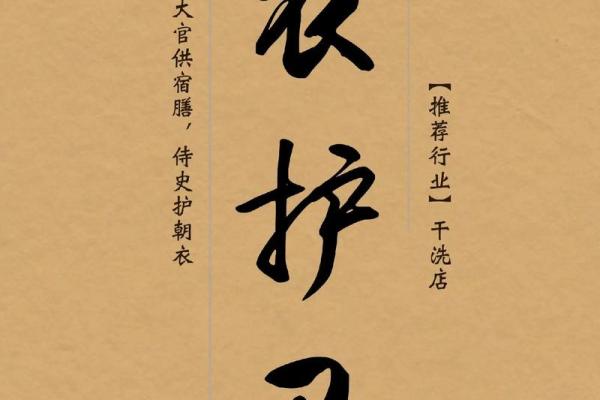 【推荐行业】干洗店
衣护
大官供宿膳，侍史护朝衣